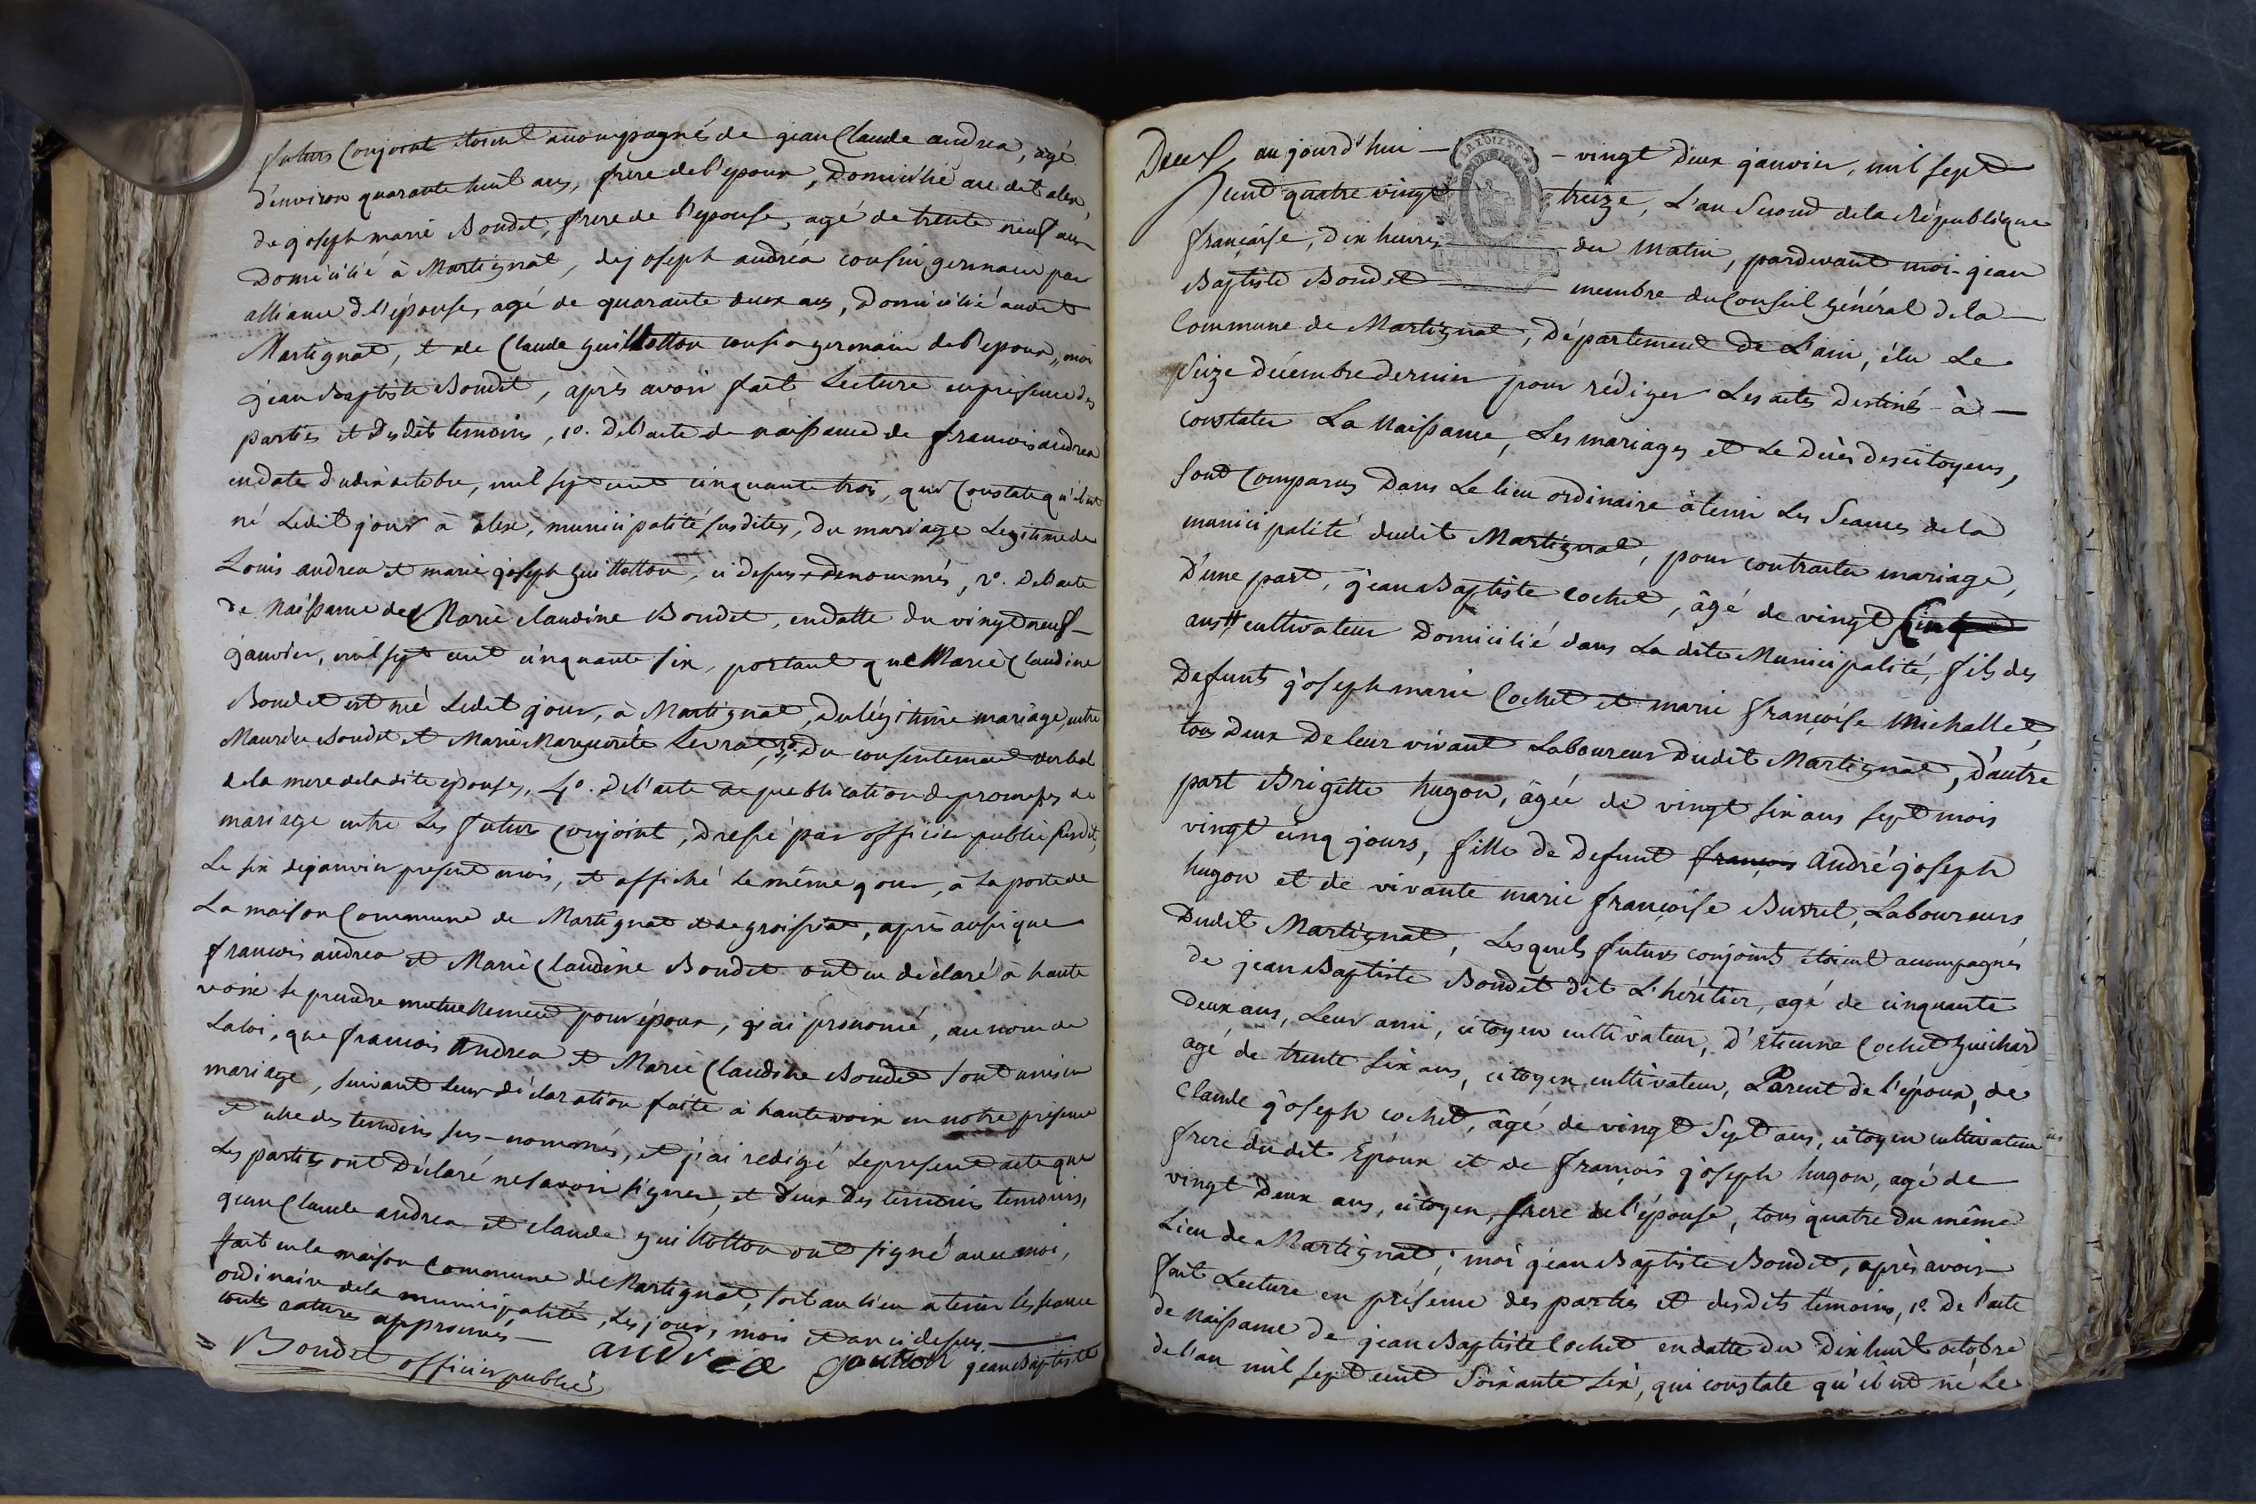 futurs conjoint etoient accompagnés de jean Claude andrea, agé
d'environ quarante huit ans, frere de l'epoux, Domicilié au dit alex,
de joseph marie Boudet, frere de l'epouse, agé de trente neuf ans
Domicilié à Martignat, de joseph andréa cousin germain par
alliance de l'épouse, agé de quarante deux ans, Domicilié audit
Martignat, et de Claude guillotton cousin germain de l'epoux, moi
jean Baptiste Boudet, après avoir fait Lecture en presence des
parties et desdits temoins, 1º. De l'acte de naissance de francois andrea
en date du dix octobre, mil sept cent cinquante trois, qui constate qu'il est
né Ledit jour à alex, municipalité susdites, du mariage Legitime de
Louis andrea et marie joseph guillotton, ci dessus denommés, 2º. De l'acte
de Naissance de Marie claudine Boudet, en datte du vingt neuf
janvier, mil sept cent cinquante six, portant que Marie Claudine
Boudet est née Ledit jour, à Martignat, du légitime mariage, entre
Maurice Boudet et Marie Marguerite Levrat, 3º. Du consentement verbal
de la mere de la dite épouse, 4º. De l'acte de publication de promesses de
mariage entre Les futurs conjoint, Dressé par officier public susdit,
Le six de janvier present mois, et affiché le même jour, à La porte de
La maison Commune de Martignat et de groissiat, après aussi que
francois andrea et Marie Claudine Boudet ont eu déclaré à haute
voix se prendre mutuellement pour époux, j'ai prononcé, au nom de
La loi, que francois Andrea et Marie Claudine Boudet sont unis en
mariage, suivant leur déclaration faite à haute voix en notre présence
et celle des temoins sus-nommés, et j'ai redigé Le present acte que
Les parties ont Déclaré ne savoir signer, et deux Des temoins temoins,
jean Claude andrea et claude guillotton ont signé avec moi,
fait en la maison Commune de Martignat, soit au lieu a tenir les seance
ordinaire de la municipalité, Les jour, mois et an ci dessus
toute rature approuvés
andréa jean Baptiste
= Boudet officier public
Deux, aujourd'hui — vingt deux janvier, mil sept
cent quatre vingt treize, L'an Second de la République
française, Dix heures du matin, pardevant moi jean
Baptiste Boudet membre du Conseil général de la
Commune de Martignat, Département De L'ain, élu Le
Seize décembre dernier pour rédiger Les actes Destinés à
constater La Naissance, Les mariages et Le Décès des citoyens,
sont Comparus Dans Le lieu ordinaire à tenir Les Seances de la
municipalité dudit Martignat, pour contracter mariage,
D'une part, jean Baptiste Cochet, âgé de vingt Cinq
ans cultivateur Domicilié dans La dite Municipalité, fils des
Defunts joseph marie Cochet et marie françoise Michallet,
tous deux De leur vivant Laboureurs Dudit Martignat, D'autre
part Brigitte hugon, âgée de vingt six ans sept mois
vingt cinq jours, fille de Defunt françois André joseph
hugon et de vivante marie françoise Burrel, Laboureurs
Dudit Martignat, Lesquels futurs conjoints étoient accompagnés
de jean Baptiste Boudet dit L'héritier, agé de cinquante
deux ans, Leur ami, citoyen cultivateur, D'étienne Cochet guichard
agé de trente six ans, citoyen cultivateur, Parent de l'époux, de
Claude joseph cochet, âgé de vingt sept ans, citoyen cultivateur
frere du dit Epoux et de françois joseph hugon, agé de
vingt Deux ans, citoyen, frere de l'épouse, tous quatre Du même
Lieu de Martignat; moi jean Baptiste Boudet, après avoir
fait Lecture en présence des parties et desdits témoins, 1º. De l'acte
de naissance de jean Baptiste Cochet en datte du Dix huit octobre
de l'an mil sept cent Soixante six, qui constate qu'il est né Le